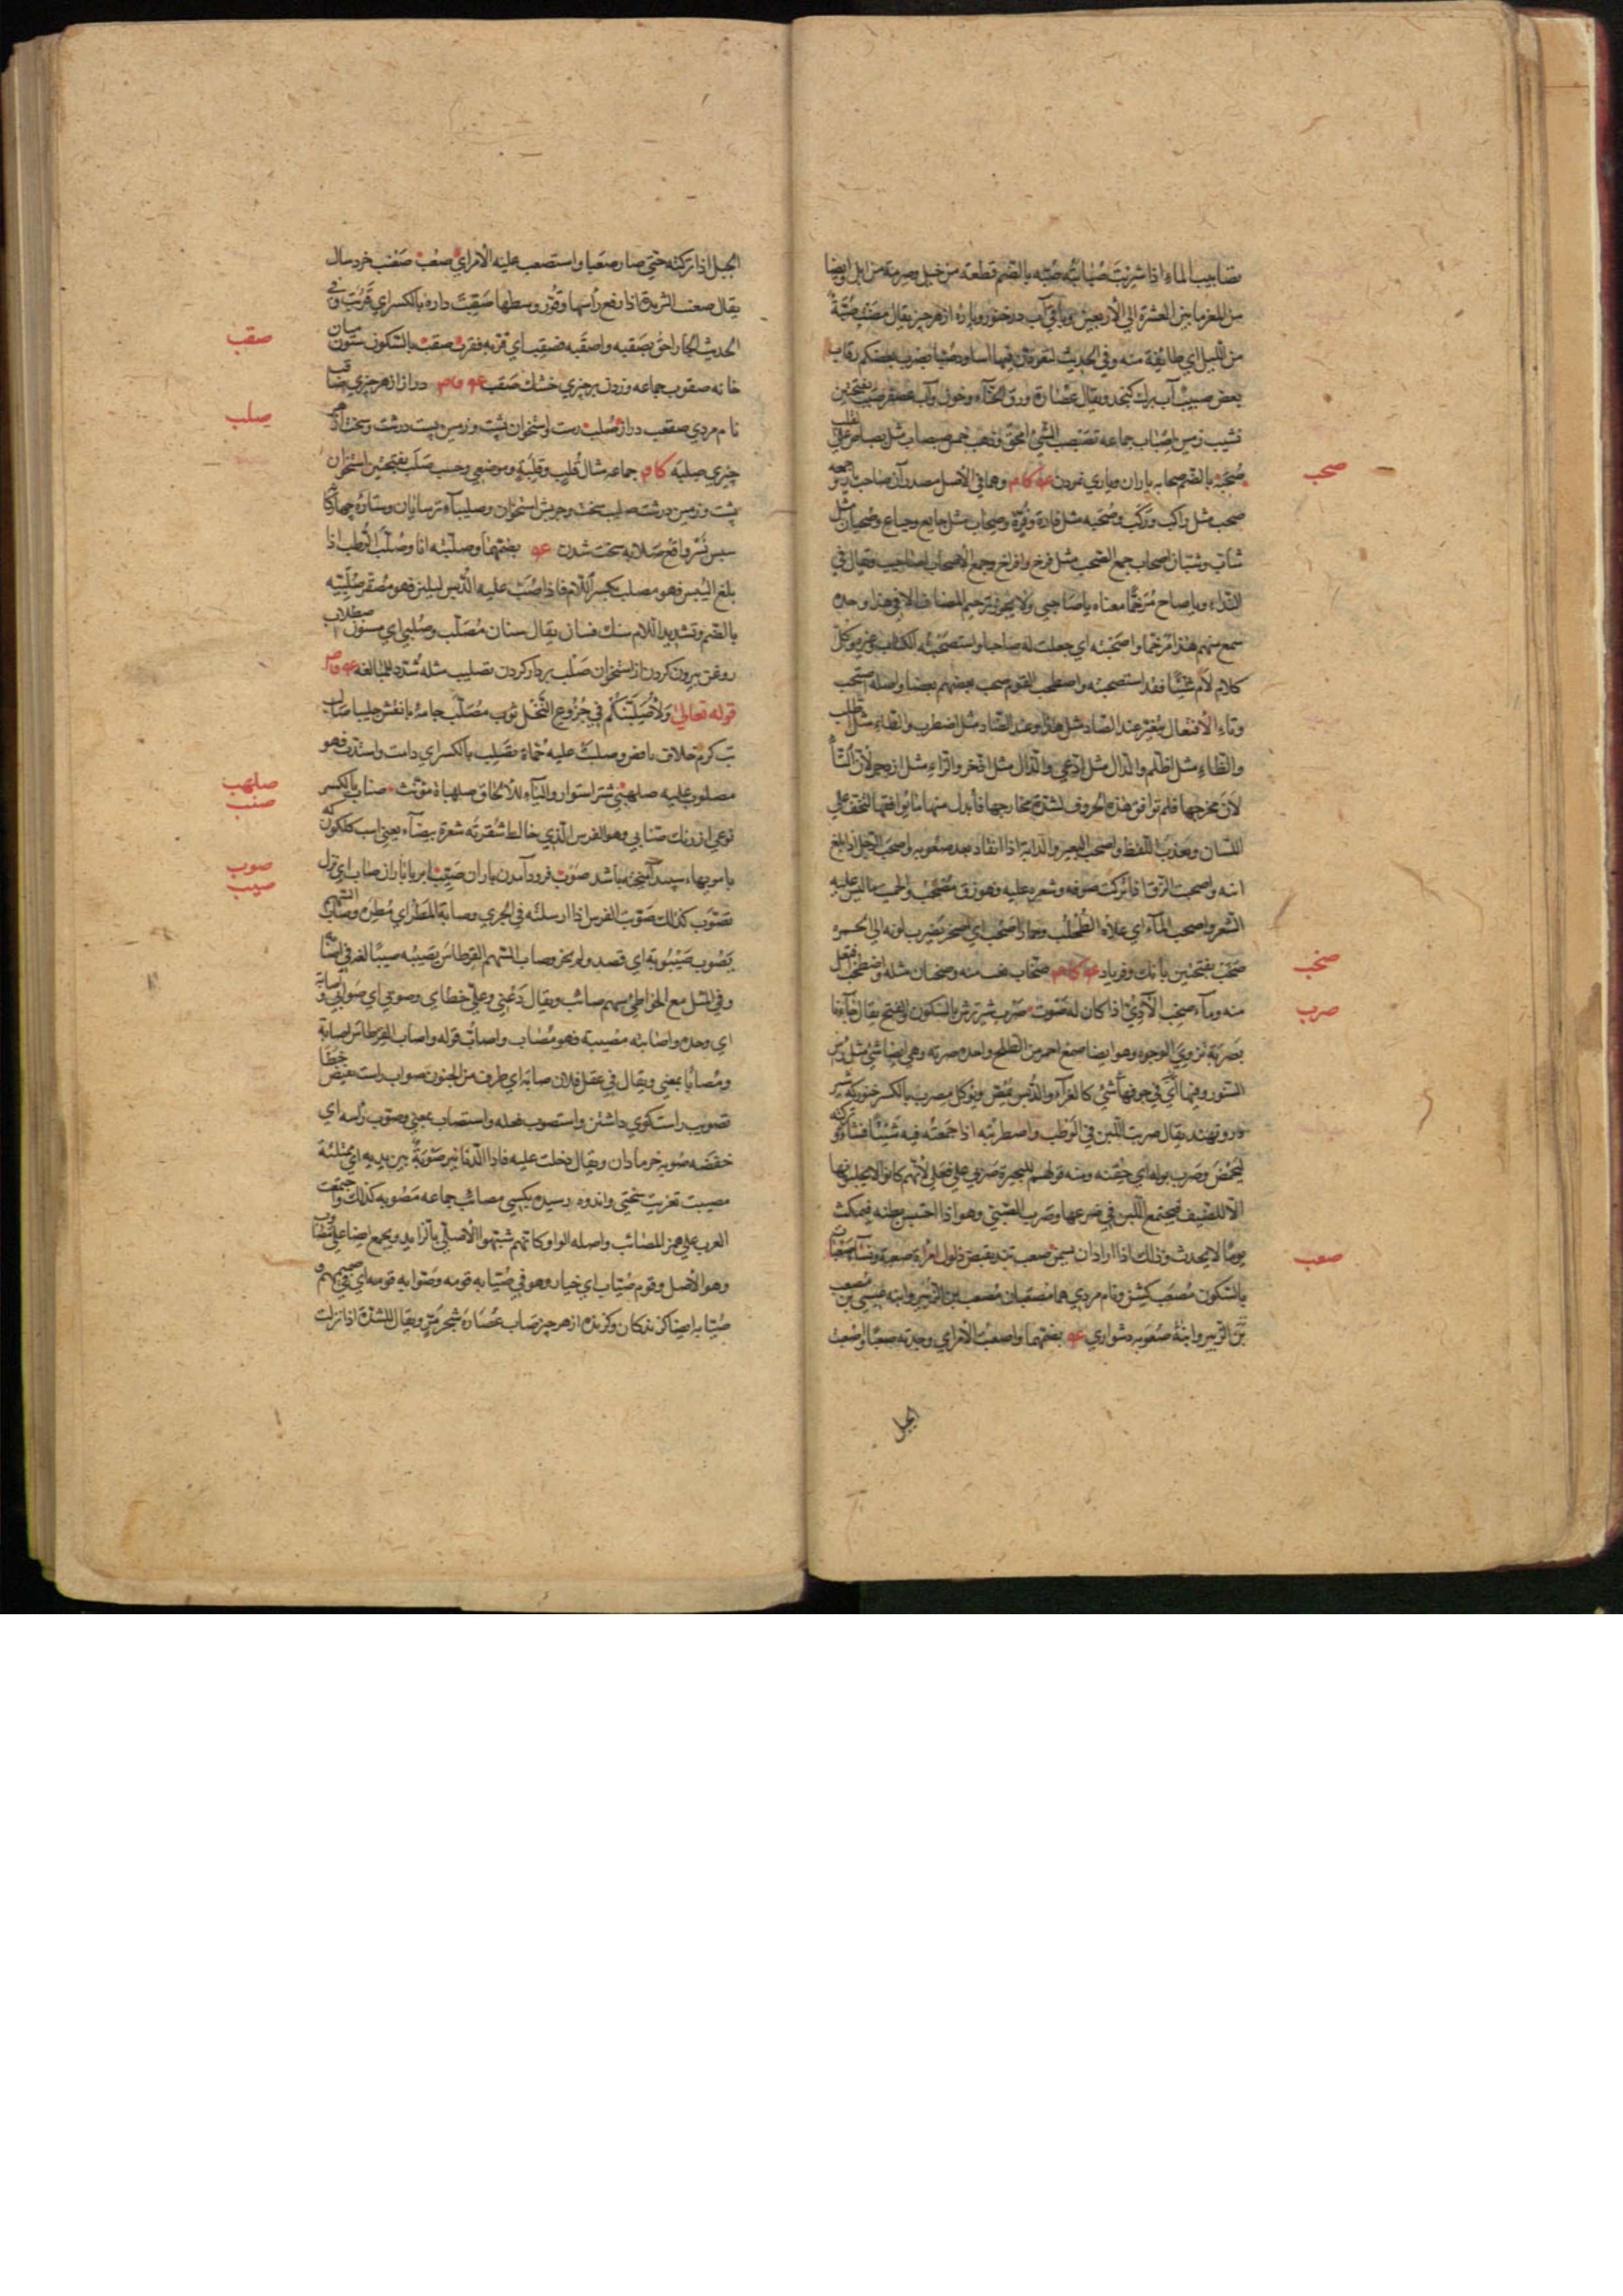 تصابیب الماء اذا شربت صبابته صبه بالضم قطعه من خیل وصرمة من ابل وایضا
من المعز ما بین العشرة الی الاربعین وباقی آب در خنور وپاره از هرچیز یقال مضت صبة
من اللیل ای طائفة منه وفی الحدیث لتعودن فیها اساود صبا یضرب بعضکم رقاب
بعض صبیب آب برك کنجد ویقال عصارة ورق الحناء وخون وآب عصفر صبب بفتحتین
نشیب زمین اصباب جماعه تصبصب الشیء امحق وذهب خمس صبصاب مثل بصباص
صحب
صحبة بالضم صحابه یاران ویاری نمودن وهما فی الاصل مصدر آن صاحب یار
صحب مثل راکب ورکب وصحبه مثل فاره وفرهة وصحاب مثل جایع وجیاع وصحبان مثل
شاب وشبان اصحاب جمع الصحب مثل فرخ وافراخ وجمع الاصحاب اصاحیب ویقال فی
النداء یا صاح مرخما معناه یا صاحبی ولا یجوز ترخیم المضاف الا فی هذا وحده
سمع منهم هذا مرخما واصحبته ای جعلت له صاحبا واستصحبته الکتاب وغیره وکل
کلام لأم شیئا فقد استصحبه واصطحب القوم صحب بعضهم بعضا واصله اصتحب
وتاء الافتعال یتغیر عند الصاد مثل هذا وعند الضاد مثل اضطرب والطاء مثل اطلب
والظاء مثل اظلم والدال مثل ادعی والذال مثل اذخر والزاء مثل ازدجر لان التاء
لان مخرجها فلم توافق هذه الحروف لشدة مخارجها فابدل منها ما یوافقها لتخف علی
اللسان ویعذب اللفظ واصحب البعیر والدابة اذا انقاد بعد صعوبه واصحب الرجل اذا بلغ
ابنه واصحبت الزق اذا ترکت صوفه وشعره علیه وهو زق مصحب والحمیت ما لیس علیه
الشعر واصحب الماء ای علاه الطحلب وحمار اصحب ای اصحر یضرب لونه الی الحمره
صخب
صخب بفتحتین بانك وفریاد صخاب نعت منه وصخبان مثله واصطخب افتعل
صرب
منه وماء صخب الآذی اذا کان له صوت صرب شیر ترش بالسکون والفتح یقال جاءنا
بصربة تزوی الوجوه وهو ایضا صمغ احمر من الطلح واحده صربه وهی ایضا شیء مثل رأس
السنور وفیها شیء فی جوفها کالغراء والدبس یمص ویؤکل مصرب بالکسر خنور که شیر
درو نهند یقال صربت اللبن فی الوطب واصطربته اذا جمعته فیه شیئا فشیئا وترکته
لیحمض وصرب بوله ای حقنه ومنه قولهم للبحیرة صربی علی فعلی لانهم کانوا لا یحلبونها
الا للضیف فیجتمع اللبن فی ضرعها وصرب الصبی وهو اذا احتبس بطنه فیمکث
صعب
یوما لا یحدث وذلك اذا اراد ان یسمن صعب تند یقبض ذلول امراة صعبه ونساء صعبات
بالسکون مصعب کیشن ونام مردی هما مصعبان مصعب بن الزبیر وابنه عیسی بن مصعب
بن الزبیر وابنه صعوبه دشواری بضمهما واصعبت الامر ای وجدته صعبا واصعبت
الجمل
الجمل اذا ترکته حتی صار صعبا واستصعب علیه الامر ای صعب صعنب خرد سال
یقال صعنب الثریدة اذا رفع راسها وقور وسطها صقبت داره بالکسر ای قربت وفی
صقب
الحدیث الجار احق بصقبه واصقبه فصقب ای قربه فقرب صقب بالسکون ستون میان
خانه صقوب جماعه وزدن برچیزی خشك صقب دراز از هرچیزی
صلب
نام مردی صقعب دراز صلب درست واستخوان پشت وزمین پست درشت وسخت از هر
چیزی صلبه جماعه مثال قلب وقلبة وموضعی وحسب صلب بفتحتین استخوان
پشت وزمین درشت صلیب سخت وچربش استخوان وچلیپاء ترسایان وستاره چهارگانه
سپس نسر واقع صلابه سخت شدن بضمهما وصلبته انا وصلب الرطب اذا
بلغ الیبس فهو مصلب بکسر اللام فاذا صب علیه الدبس لیلین فهو مصقر صلبیه
بالضم وتشدید اللام سنك فسان یقال سنان مصلب وصلبی ای مسنون
روغن بیرون کردن از استخوان صلب بر دار کردن تصلیب مثله شدد للمبالغه
قوله تعالی ولأصلبنکم فی جذوع النخل ثوب مصلب جامه با نقش چلیپا صالب
تب کرم خلاف نافض وصلبت علیه حماه تصلب بالکسر ای دامت واشتدت فهو
صلهب
مصلوب علیه صلهبی شتر استوار والیاء للالحاق صلهباة مؤنث صناب بالکسر
صنب
نوعی از رنك صنابی وهو الفرس الذی خالط شقرته شعرة بیضاء یعنی اسب کلکون که
صوب
با مویهاء سپید آمیخته باشد صوب فرود آمدن باران صیب ابر با باران صاب ای نزل
صیب
تصوب کذلك صوبت الفرس اذا ارسلته فی الجری وصابة المطر ای مطر وصاب السهم
یصوب صیبوبة ای قصد ولم یجر وصاب السهم القرطاس یصیبه صیبا لغة فی اصابه
وفی المثل مع الخواطئ سهم صائب ویقال دعنی وعلی خطای وصوبی ای صوابی واصابه
ای وجده واصابته مصیبة فهو مصاب واصاب قوله واصاب القرطاس اصابة
ومصابا بمعنی ویقال فی عقل فلان صابه ای طرف من الجنون صواب راست نقیض خطا
تصویب راستکوی داشتن واستصوب فعله واستصاب بمعنی وصوب راسه ای
خفضه صوبه خرمادان ویقال دخلت علیه فاذا الدنانیر صوبة بین یدیه ای
مصیبت تعزیت سختی واندوه رسیده بکسی مصائب جماعه مصوبه کذلك واجمعت
العرب علی همز المصائب واصله الواو کانهم شبهوا الاصلی بالزاید ویجمع ایضا علی مصاوب
وهو الاصل وقوم صیاب ای خیار وهو فی صیابه قومه وصوابه قومه ای فی صمیمهم
صیابه ایضا کزیدکان وکزیده از هرچیز صاب عصاره شجر مر ویقال للشدة اذا نزلت